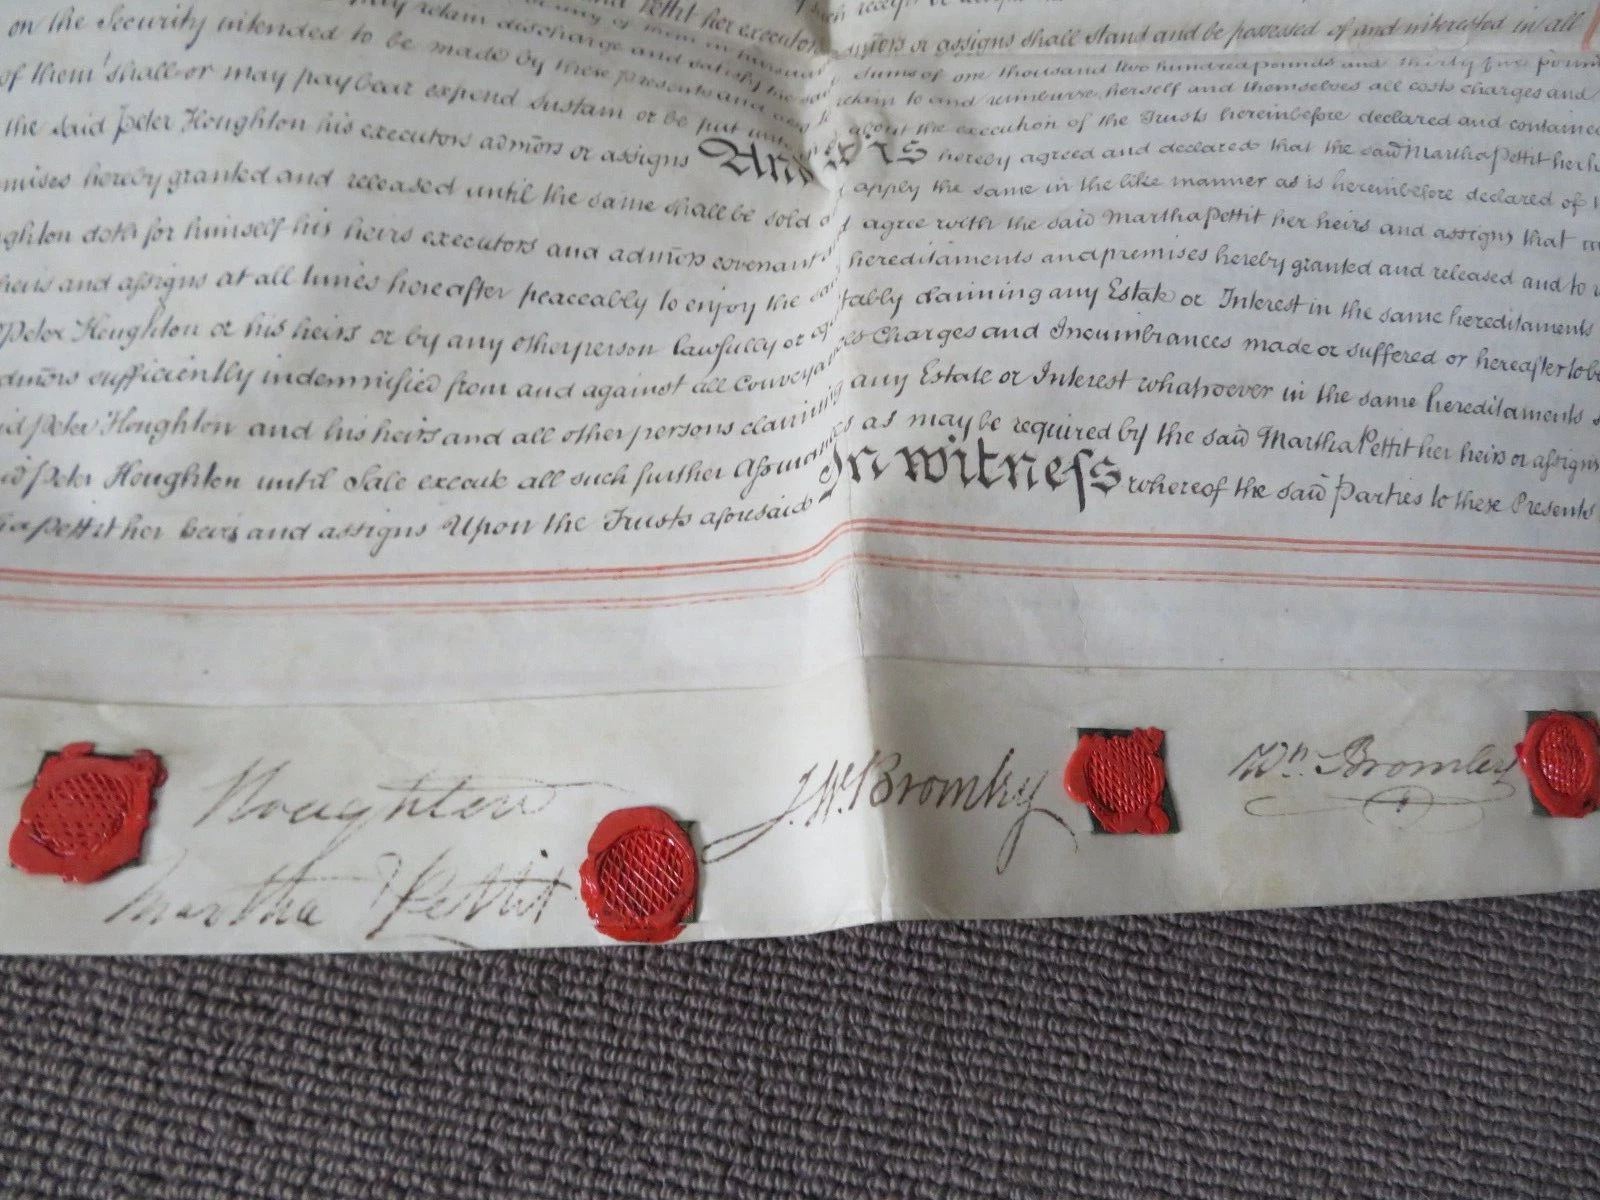 Pettit her executors such receipt
any of them in pursuance admōrs or assigns shall stand and be possessed of and interested in all
retain discharge and satisfy the said Sums of one thousand two hundred pounds and thirty five pounds
on the Security intended to be made by these presents and retain to and reimburse herself and themselves all costs charges and
of them shall or may pay bear expend sustain or be put unto about the execution of the Trusts hereinbefore declared and contained
the said Peter Houghton his executors admōrs or assigns And it is hereby agreed and declared that the said Martha Pettit her
mises hereby granted and released until the same shall be sold apply the same in the like manner as is hereinbefore declared of
ghton doth for himself his heirs executors and admōrs covenant agree with the said Martha Pettit her heirs and assigns that
heirs and assigns at all times hereafter peaceably to enjoy the said hereditaments and premises hereby granted and released and to
Peter Houghton or his heirs or by any other person lawfully or equitably claiming any Estate or Interest in the same hereditaments
dmōrs sufficiently indemnified from and against all Conveyances Charges and Incumbrances made or suffered or hereafter to be
id Peter Houghton and his heirs and all other persons claiming any Estate or Interest whatsoever in the same hereditaments
id Peter Houghton until Sale execute all such further Assurances as may be required by the said Martha Pettit her heirs or assigns
ha Pettit her heirs and assigns Upon the Trusts aforesaid In witness whereof the said Parties to these Presents
Houghton
J. W. Bromley
Wm. Bromley
Martha Pettit